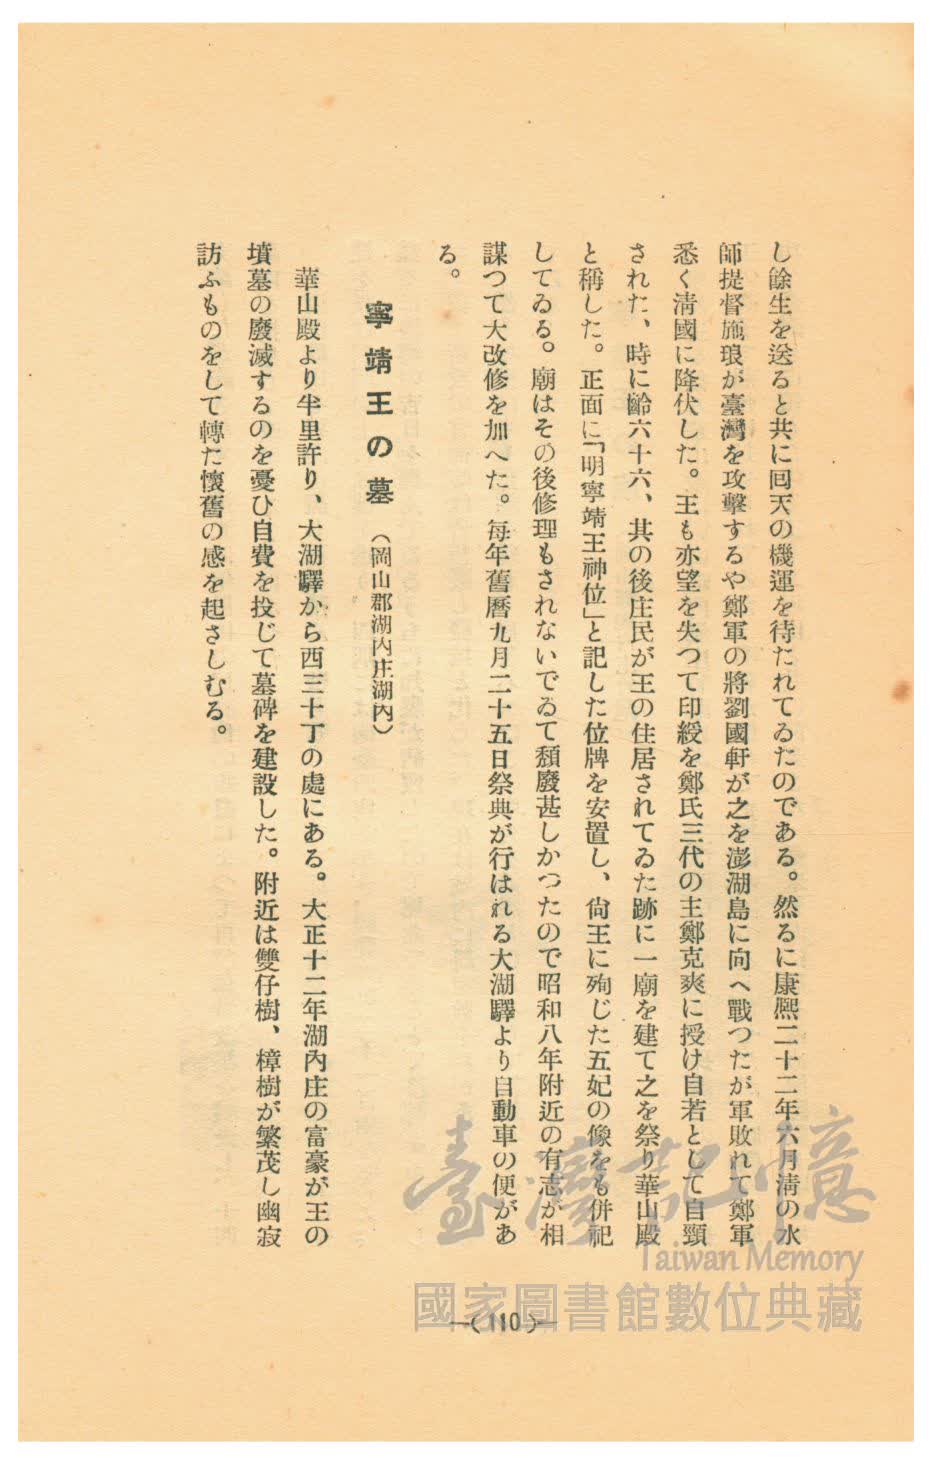 し餘生を送ると共に囘天の機運を待たれてゐたのである。然るに康熙二十二年六月淸の水
師提督施琅が臺灣を攻擊するや鄭軍の將劉國軒が之を澎湖島に向へ戰つたが軍敗れて鄭軍
悉く淸國に降伏した。王も亦望を失つて印綬を鄭氏三代の主鄭克爽に授け自若として自頸
された、時に齡六十六、其の後庄民が王の住居されてゐた跡に一廟を建て之を祭り華山殿
と稱した。正面に「明寧靖王神位」と記した位牌を安置し、尙王に殉じた五妃の像をも併祀
してゐる。廟はその後修理もされないでゐて頽廢甚しかつたので昭和八年附近の有志が相
謀つて大改修を加へた。每年舊曆九月二十五日祭典が行はれる大湖驛より自動車の便があ
る。
寧靖王の墓（岡山郡湖內庄湖內）
華山殿より半里許り、大湖驛から西三十丁の處にある。大正十二年湖內庄の富豪が王の
墳墓の廢滅するのを憂ひ自費を投じて墓碑を建設した。附近は雙仔樹、樟樹が繁茂し幽寂
訪ふものをして轉た懷舊の感を起さしむる。
—(110)—
臺灣記憶
Taiwan Memory
國家圖書館數位典藏